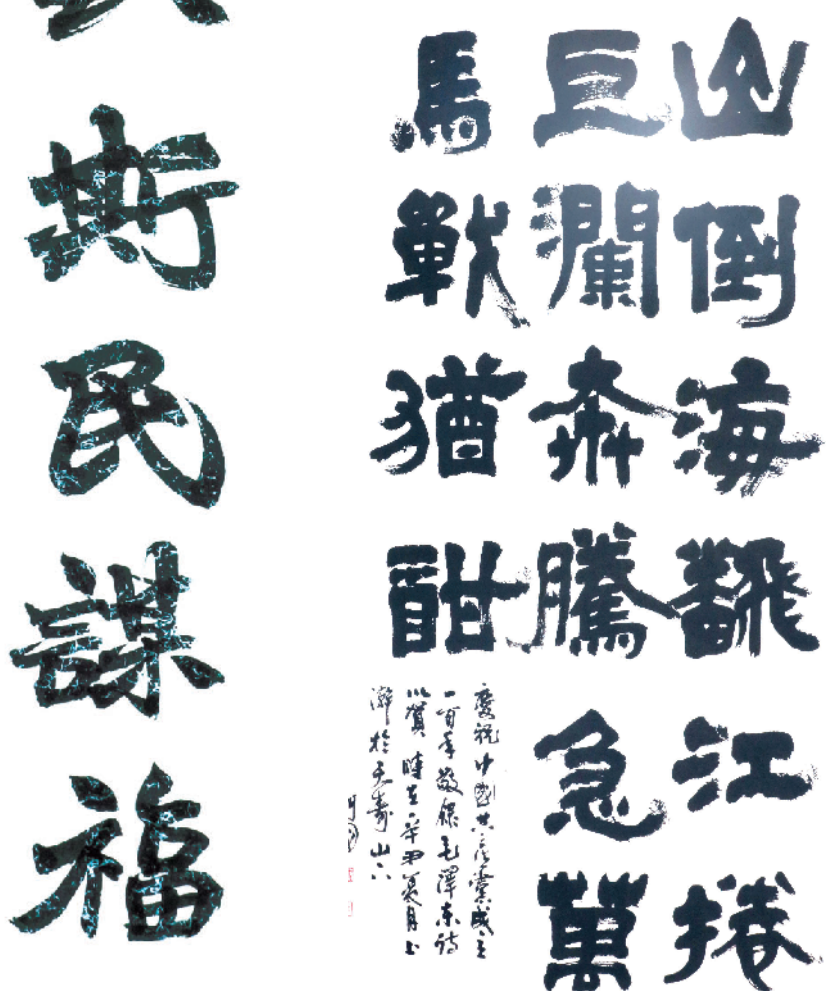 山倒海飜江捲
巨瀾奔騰急萬
馬戰猶酣
慶祝中國共产黨成立
一百年敬錄毛澤東詩
以賀 時在辛丑夏月上
澣於天壽山下
斯民謀福